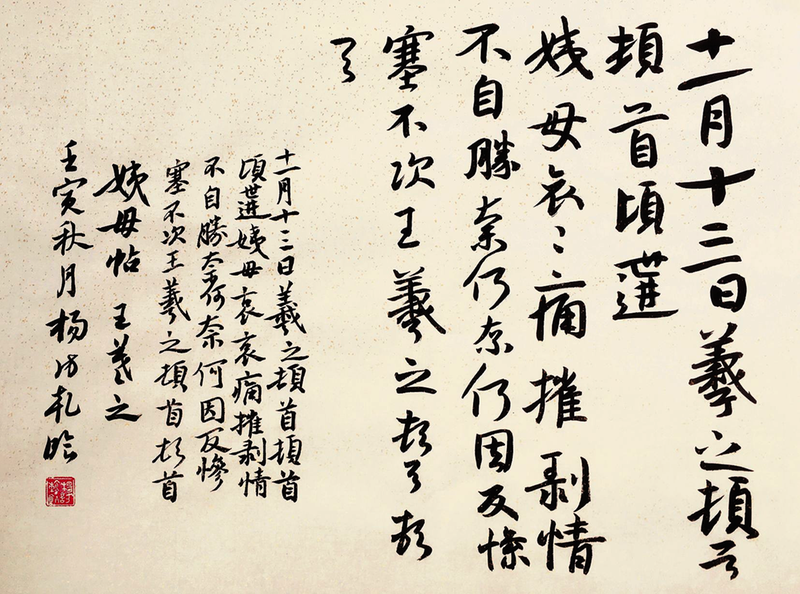 十一月十三日羲之頓首
頓首頃遘
姨母哀〻痛摧剥情
不自勝奈何奈何因反慘
塞不次王羲之頓首頓
首
十一月十三日羲之頓首頓首
頃遘姨母哀哀痛摧剥情
不自勝奈何奈何因反慘
塞不次王羲之頓首頓首
姨母帖 王羲之
壬寅秋月杨